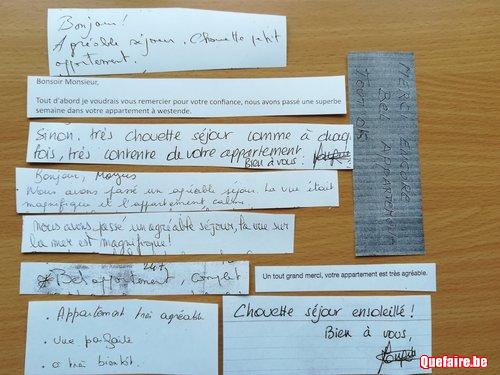 Bonjour!
Agréable séjour. Chouette petit
appartement.
Bonsoir Monsieur,
Tout d'abord je voudrais vous remercier pour votre confiance, nous avons passé une superbe
semaine dans votre appartement à westende.
Sinon, très chouette séjour comme à chaq
fois, très contente de votre appartement
Bien à vous.
MERCI ENCORE
BEL APPARTEMENT
Bonjour,
Nous avons passé un agréable séjour. La vue était
magnifique et l'appartement calme
Nous avons passé un agréable séjour, la vue sur
la mer est magnifique!
Bel appartement complet
Un tout grand merci, votre appartement est très agréable.
. Appartement très agréable
. vue parfaite
. a très bientôt.
Chouette séjour ensoleillé!
Bien à vous,
Quefaire.be